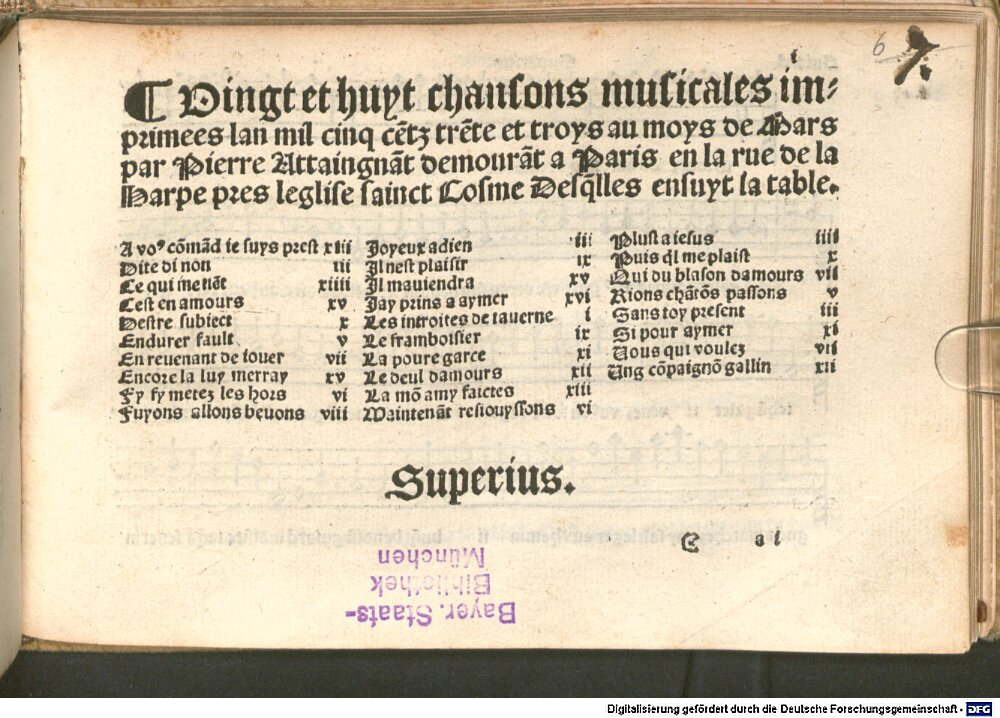 6
¶ Vingt et huyt chansons musicales im⸗
primees lan mil cinq cētz trēte et troys au moys de Mars
par Pierre Attaingnāt demourāt a Paris en la rue de la
Harpe pres leglise sainct Cosme Desq̄lles ensuyt la table.
A voꝰ cōmād ie suys prest xiii
Dite di non iii
Ce qui me nāt xiiii
Cest en amours xv
Destre subiect x
Endurer fault v
En reuenant de iouer vii
Encore la luy merray xv
Fy fy metez les hors vi
Fuyons allons beuons viii
Joyeux adieu iii
Il nest plaisir ix
Il mauiendra xv
Jay prins a aymer xvi
Les introites de tauerne i
Le framboisier ix
La poure garce xi
Le deul damours xii
La mō amy faictes xiii
Maintenāt resiouyssons vi
Plust a iesus iiii
Puis q̄l me plaist x
Qui du blason damours vii
Rions chātōs passons v
Sans toy present iii
Si pour aymer xi
Vous qui voulez vii
Ung cōpaignō gallin xii
Superius.
a i
Bayer. Staats-
Bibliothek
München
Digitalisierung gefördert durch die Deutsche Forschungsgemeinschaft - DFG